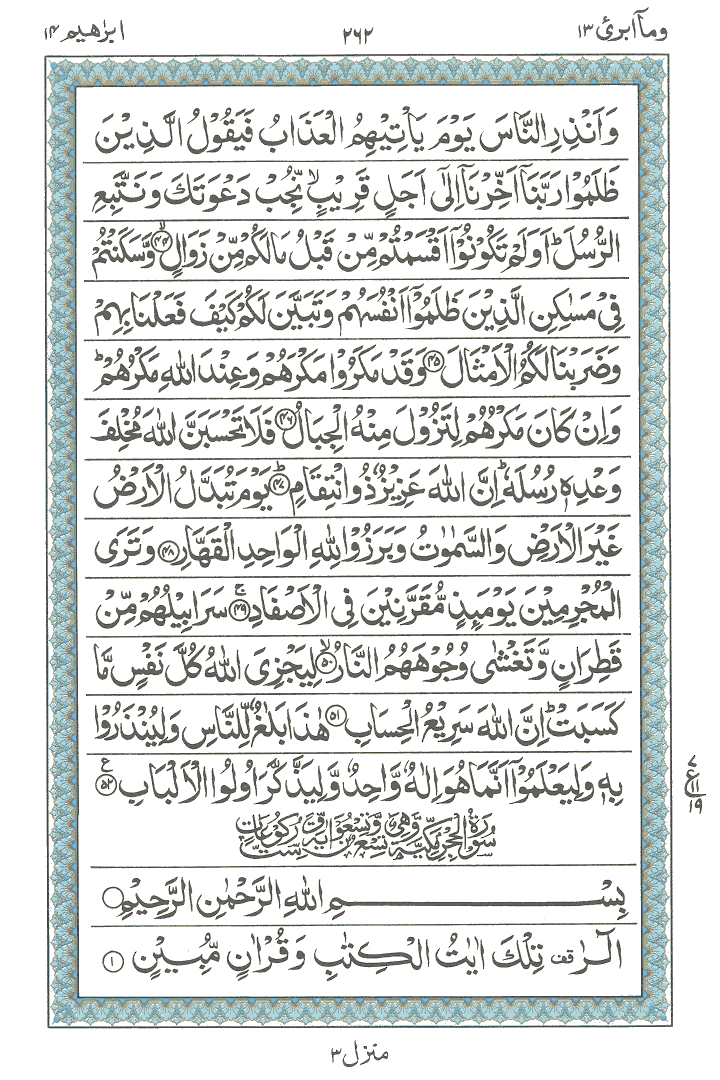 وماۤ ابرئ ١٣
٢٦٢
ابرٰهیم ١٤
وَاَنْذِرِ النَّاسَ يَوْمَ يَاْتِيْهِمُ الْعَذَابُ فَيَقُوْلُ الَّذِيْنَ
ظَلَمُوْا رَبَّنَاۤ اَخِّرْنَاۤ اِلٰۤى اَجَلٍ قَرِيْبٍ ۙ نُّجِبْ دَعْوَتَكَ وَنَتَّبِعِ
الرُّسُلَ ؕ اَوَلَمْ تَكُوْنُوْۤا اَقْسَمْتُمْ مِّنْ قَبْلُ مَا لَكُمْ مِّنْ زَوَالٍ ۙ ﴿٤٤﴾ وَّسَكَنْتُمْ
فِيْ مَسٰكِنِ الَّذِيْنَ ظَلَمُوْۤا اَنْفُسَهُمْ وَتَبَيَّنَ لَكُمْ كَيْفَ فَعَلْنَا بِهِمْ
وَضَرَبْنَا لَكُمُ الْاَمْثَالَ ﴿٤٥﴾ وَقَدْ مَكَرُوْا مَكْرَهُمْ وَعِنْدَ اللّٰهِ مَكْرُهُمْ ؕ
وَاِنْ كَانَ مَكْرُهُمْ لِتَزُوْلَ مِنْهُ الْجِبَالُ ﴿٤٦﴾ فَلَا تَحْسَبَنَّ اللّٰهَ مُخْلِفَ
وَعْدِهٖ رُسُلَهٗ ؕ اِنَّ اللّٰهَ عَزِيْزٌ ذُو انْتِقَامٍ ؕ ﴿٤٧﴾ يَوْمَ تُبَدَّلُ الْاَرْضُ
غَيْرَ الْاَرْضِ وَالسَّمٰوٰتُ وَبَرَزُوْا لِلّٰهِ الْوَاحِدِ الْقَهَّارِ ﴿٤٨﴾ وَتَرَى
الْمُجْرِمِيْنَ يَوْمَىِٕذٍ مُّقَرَّنِيْنَ فِي الْاَصْفَادِ ۚ ﴿٤٩﴾ سَرَابِيْلُهُمْ مِّنْ
قَطِرَانٍ وَّتَغْشٰى وُجُوْهَهُمُ النَّارُ ۙ ﴿٥٠﴾ لِيَجْزِيَ اللّٰهُ كُلَّ نَفْسٍ مَّا
كَسَبَتْ ؕ اِنَّ اللّٰهَ سَرِيْعُ الْحِسَابِ ﴿٥١﴾ هٰذَا بَلٰغٌ لِّلنَّاسِ وَلِيُنْذَرُوْا
بِهٖ وَلِيَعْلَمُوْۤا اَنَّمَا هُوَ اِلٰهٌ وَّاحِدٌ وَّلِيَذَّكَّرَ اُولُوا الْاَلْبَابِ ﴿٥٢﴾ ع
ع ٧ ١١ ١٩
سُوْرَةُ الْحِجْرِ مَكِّيَّةٌ وَّهِيَ تِسْعٌ وَّتِسْعُوْنَ اٰيَةً وَّسِتُّ رُكُوْعَاتٍ
بِسْمِ اللّٰهِ الرَّحْمٰنِ الرَّحِيْمِ
الٓرٰ قف تِلْكَ اٰيٰتُ الْكِتٰبِ وَقُرْاٰنٍ مُّبِيْنٍ ﴿١﴾
منزل ٣